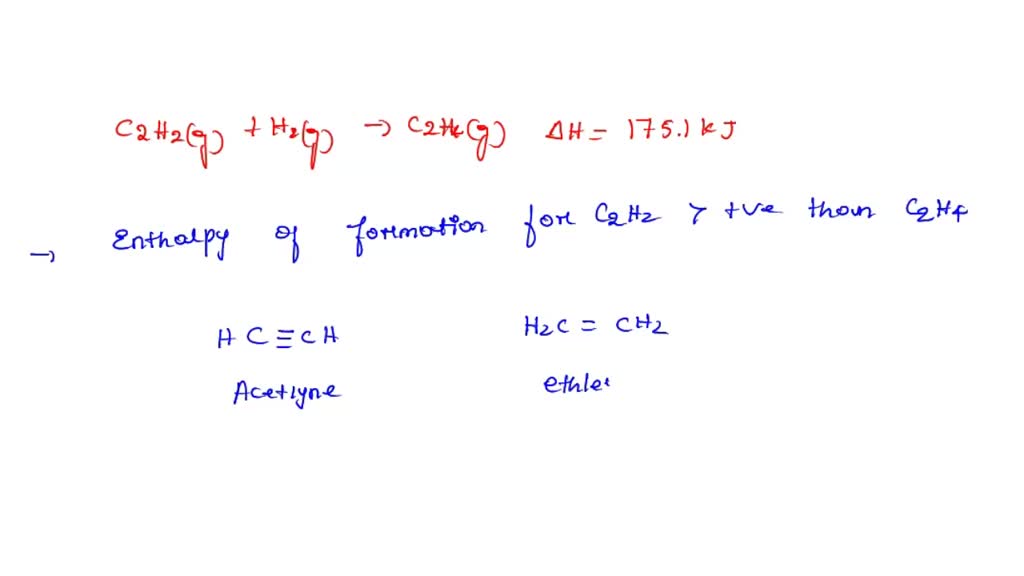 C2H2(g) + H2(g) → C2H4(g) ΔH = 175.1 kJ
→ Enthalpy of formation for C2H2 > +ve than C2H4
HC≡CH H2C = CH2
Acetlyne ethle